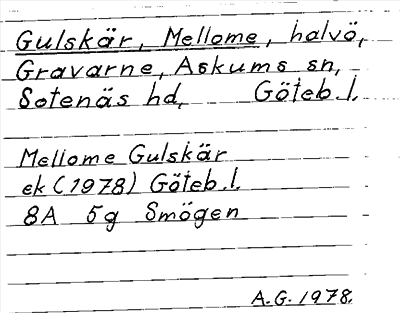 Gulskär, Mellome, halvö,
Gravarne, Askums sn,
Sotenäs hd, Göteb. l.
Mellome Gulskär
ek (1978) Göteb. l.
8A 5g Smögen
A.G. 1978.